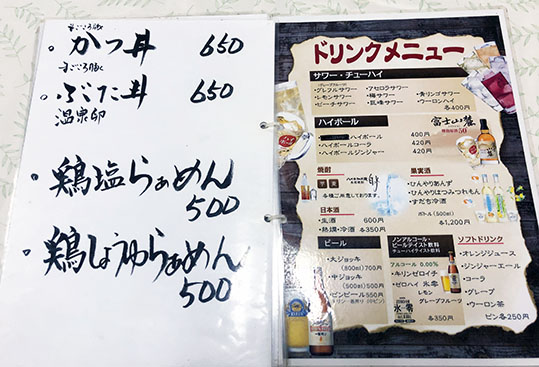 かつ丼 650
ぶた丼 650
温泉卵
鶏塩らぁめん
500
鶏しょうゆらぁめん
500
ドリンクメニュー
サワー・チューハイ
(グレープフルーツ)
・グレフルサワー ・アセロラサワー ・青リンゴサワー
・レモンサワー ・梅サワー ・ウーロンハイ
・ピーチサワー ・巨峰サワー 各400円
ハイボール
富士山麓
ハイボール 400円
ハイボールコーラ 420円
ハイボールジンジャー 420円
焼酎
各種ご用意しております。
日本酒
・生酒 600円
・熱燗・冷酒 各350円
果実酒
・ひんやりあんず
・ひんやりはつみつれもん
・すだち冷酒
ボトル(500ml)
各1,200円
ビール
・大ジョッキ
(800ml)700円
・中ジョッキ
(500ml)500円
・ビンビール550円
ノンアルコール・
ビールテイスト飲料
チューハイテイスト飲料
アルコール 0.00%
・キリンゼロイチ
・ゼロハイ 氷零
レモン
グレープフルーツ
氷零
各350円
ソフトドリンク
・オレンジジュース
・ジンジャーエール
・コーラ
・グレープ
・ウーロン茶
ビン各250円